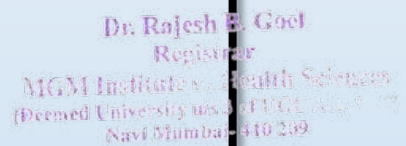 Dr. Rajesh B. Goel
Registrar
MGM Institute of Health Sciences
(Deemed University u/s 3 of UGC
Navi Mumbai- 410 209